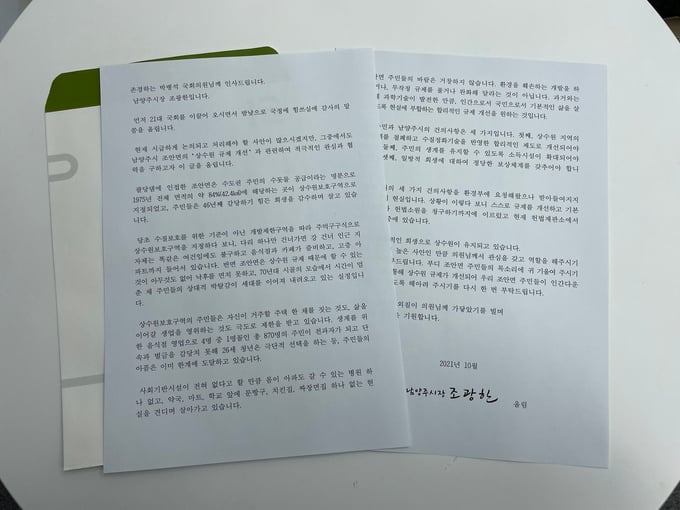 존경하는 박병석 국회의원님께 인사드립니다.
남양주시장 조광한입니다.
먼저 21대 국회를 이끌어 오시면서 밤낮으로 국정에 힘쓰심에 감사의 말
씀을 올립니다.
현재 시급하게 논의되고 처리해야 할 사안이 많으시겠지만, 그중에서도
남양주시 조안면의 '상수원 규제 개선' 과 관련하여 적극적인 관심과 협
력을 구하고자 이 글을 올립니다.
팔당댐에 인접한 조안면은 수도권 주민의 수돗물 공급이라는 명분으로
1975년 전체 면적의 약 84%(42.4㎢)에 해당하는 곳이 상수원보호구역으로
지정되었고, 주민들은 46년째 감당하기 힘든 희생을 감수하며 살고 있습
니다.
당초 수질보호를 위한 기준이 아닌 개발제한구역을 따라 주먹구구식으로
상수원보호구역을 지정하다 보니, 다리 하나만 건너가면 강 건너 인근 지
자체는 똑같은 여건임에도 불구하고 음식점과 카페가 즐비하고, 고층 아
파트까지 들어서 있습니다. 반면 조안면은 상수원 규제 때문에 할 수 있는
것이 아무것도 없어 낙후를 면치 못하고, 70년대 시골의 모습에서 시간이 멈
춘 채 주민들의 상대적 박탈감이 세대를 이어져 내려오고 있는 실정입니
다.
상수원보호구역의 주민들은 자신이 거주할 주택 한 채를 짓는 것도, 삶을
이어갈 생업을 영위하는 것도 극도로 제한을 받고 있습니다. 생계를 위
한 음식점 영업으로 4명 중 1명꼴인 총 870명의 주민이 전과자가 되고 단
속과 벌금을 감당치 못해 26세 청년은 극단적 선택을 하는 등, 주민들의
아픔은 이미 한계에 도달하고 있습니다.
사회기반시설이 전혀 없다고 할 만큼 몸이 아파도 갈 수 있는 병원 하
나 없고, 약국, 마트, 학교 앞에 문방구, 치킨집, 짜장면집 하나 없는 현
실을 견디며 살아가고 있습니다.
주민들의 바람은 거창하지 않습니다. 환경을 훼손하는 개발을 하
무작정 규제를 풀거나 완화해 달라는 것이 아닙니다. 과거와는
과학기술이 발전한 만큼, 인간으로서 국민으로서 기본적인 삶을 살
현실에 부합하는 합리적인 규제 개선을 원하는 것입니다.
남양주시의 건의사항은 세 가지입니다. 첫째, 상수원 지역의
철폐하고 수질정화기술을 반영한 합리적인 제도로 개선되어야
둘째, 주민의 생계를 유지할 수 있도록 소득시설이 확대되어야
셋째, 일방적 희생에 대하여 정당한 보상체계를 갖추어야 합니
세 가지 건의사항을 환경부에 요청해왔으나 받아들여지지
현실입니다. 상황이 이렇다 보니 스스로 규제를 개선하고 기본
헌법소원을 청구하기까지에 이르렀고 현재 헌법재판소에서
있습니다.
희생으로 상수원이 유지되고 있습니다.
높은 사안인 만큼 의원님께서 관심을 갖고 역할을 해주시기
부디 조안면 주민들의 목소리에 귀 기울여 주시기
상수원 규제가 개선되어 우리 조안면 주민들이 인간다운
헤아려 주시기를 다시 한 번 부탁드립니다.
의원님께 가닿았기를 빌며
기원합니다.
2021년 10월
남양주시장 조광한 올림